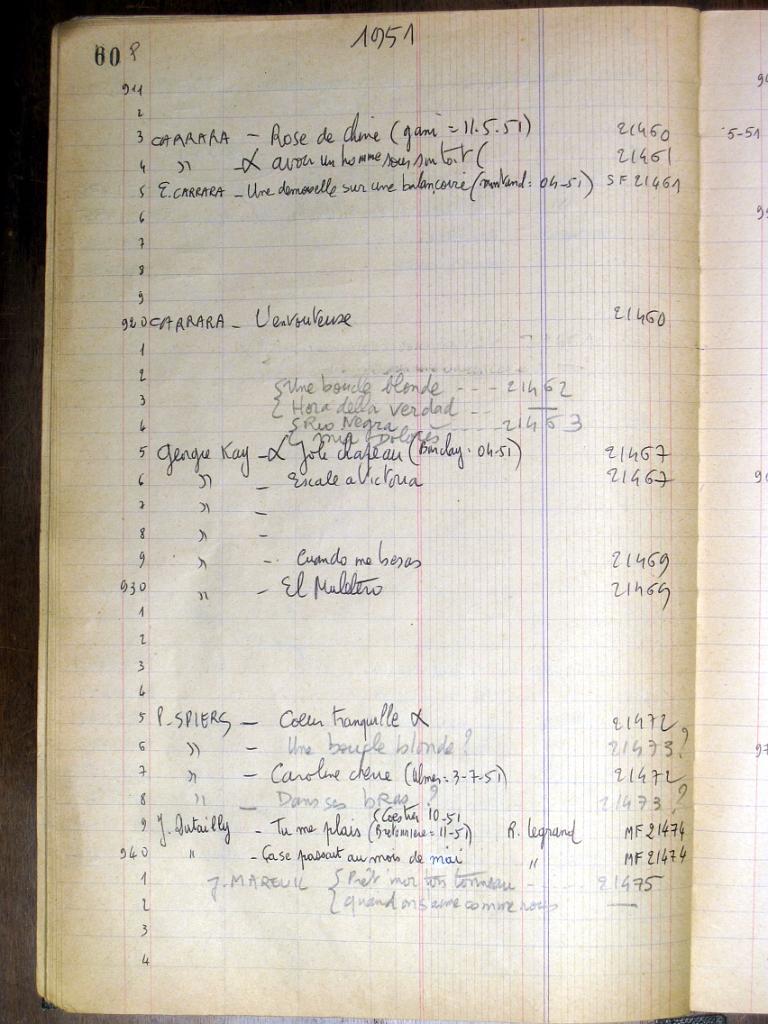 60 P 1951
911
2
3 CARRARA - Rose de Chine (gani = 11.5.51) 21460 5-51
4 " - α avoir un homme sous son toit ( 21461
5 E. CARRARA - Une demoiselle sur une balançoire ( : 04-51) SF 21461
6
7
8
9
920 CARRARA - L'envouteuse 21460
1
2 { Une boucle blonde --- 21462
3 { Hora della verdad --
4 { Rio Negra - 21463
{ mia Dolores
5 George Kay - α Joli chapeau (Barclay : 04-51) 21467
6 " - Escale a Victoria 21467
7 " -
8 " -
9 " - Cuando me besas 21469
930 " - El 21469
1
2
3
4
5 P. SPIERS - Coeur tranquille α 21472
6 " - Une boucle blonde ? 21473 ?
7 " - Caroline cherie (Ulmer = 3-7-51) 21472
8 " - Dans ses bras ? 21473 ?
9 J. Datailly - Tu me plais ( 10-51 (Bretonniere = 11-51) R. Legrand MF 21474
940 " - Ca se passait au mois de mai " MF 21474
1 J. MAREUIL { Prêt' moi ton tonneau - ... 21475
2 { quand on s'aime comme nous —
3
4